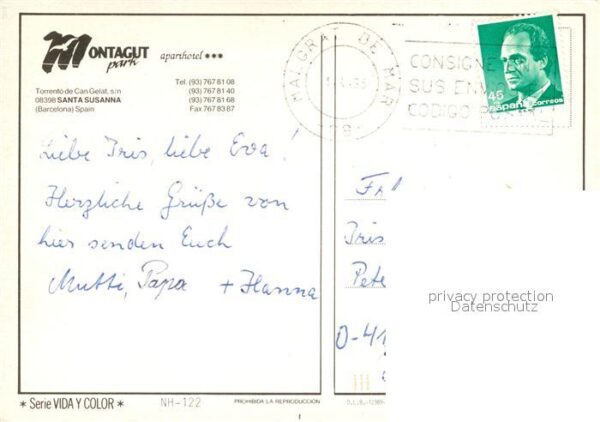 MONTAGUT
park
aparthotel ***
Torrento de Can Gelat, s/n
08398 SANTA SUSANNA
(Barcelona) Spain
Tel. (93) 767 81 08
(93) 767 81 40
(93) 767 81 68
Fax 767 83 87
MALGRAT DE MAR
CONSIGNE
SUS
CODIGO
45
España Correos
Liebe Iris, liebe Eva,
Herzliche Grüße von
hier senden Euch
Mutti, Papa + Hanna
Iris
Pete
O-41
privacy protection
Datenschutz
* Serie VIDA Y COLOR *
NH-122
PROHIBIDA LA REPRODUCCIÓN